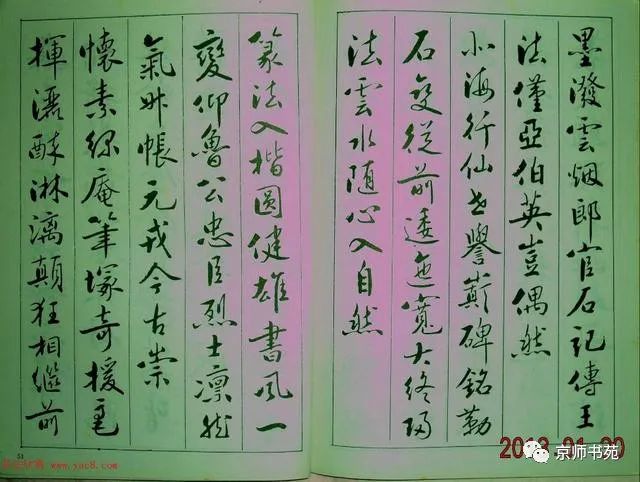 墨潑雲烟郎官石記傳王
法僅亞伯英豈偶然
北海行仙譽碑銘勒
石從前逶迤寬大終歸
法雲水随心入自然
篆法入楷圓健雄書風一
變仰魯公忠臣烈士凛然
氣升帳元戎今古崇
懷素綠庵筆塚奇援毫
揮灑酥淋漓顛狂相繼前
51
www.yac8.com
京师书苑